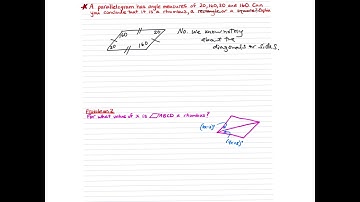 A parallelogram has angle measures of 20, 160, 20 and 160. Can
you conclude that it is a rhombus, a rectangle or a square? Explain
160 20
20 160
No. We know nothing
about the
diagonals or sides.
Problem 2
For what value of x is ▱ABCD a rhombus?